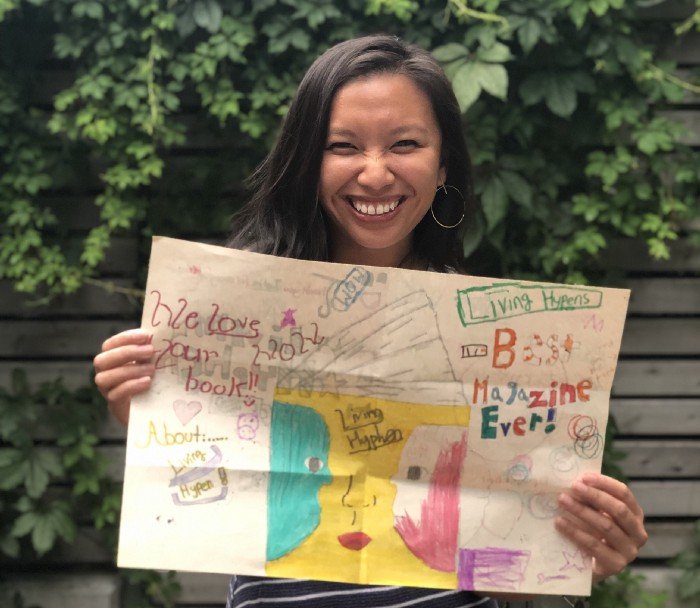 We love
your
book!!
22022
About:.....
Living
Hypen
Living
Hyphen
Living Hypens
Best
Magazine
Ever!